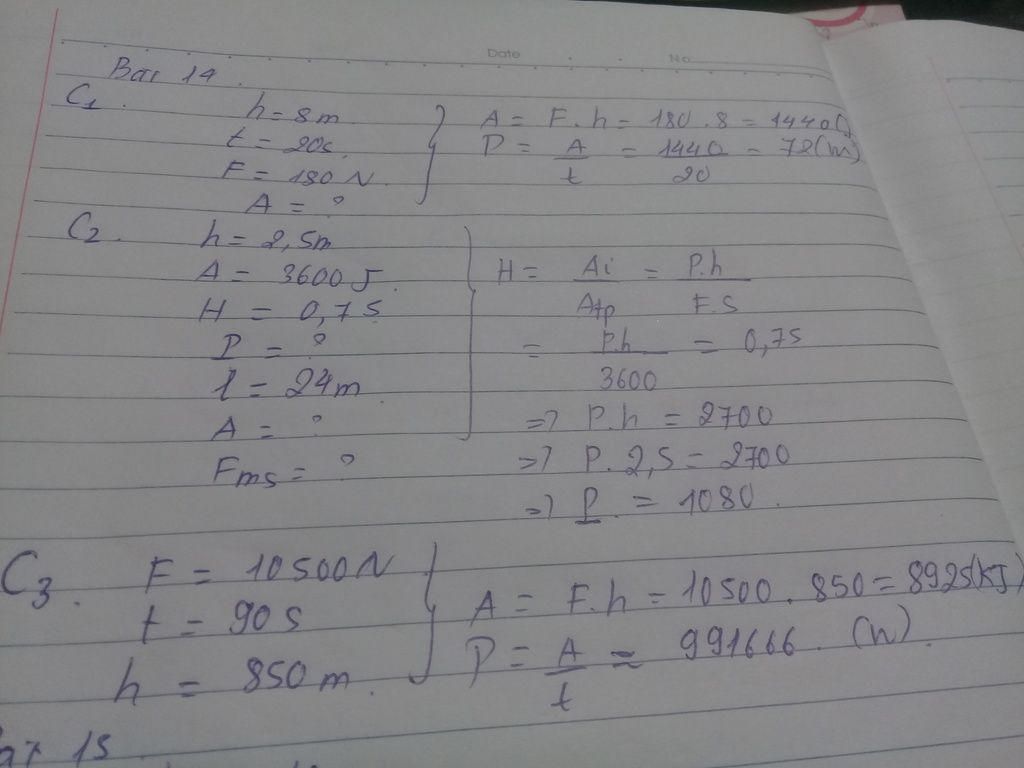 Date No
Bài 14
C1. h = 8m
t = 20s
F = 180 N
A = ?
A = F.h = 180.8 = 1440(J)
P = A/t = 1440/20 = 72(W)
C2. h = 2,5m
A = 3600 J
H = 0,75
P = ?
l = 24m
A = ?
Fms = ?
H = Ai/Atp = P.h/F.S
= P.h/3600 = 0,75
=> P.h = 2700
=> P.2,5 = 2700
=> P = 1080
C3. F = 10500N
t = 90s
h = 850m
A = F.h = 10500.850 = 8925(KJ)
P = A/t ≈ 991666 (W)
15